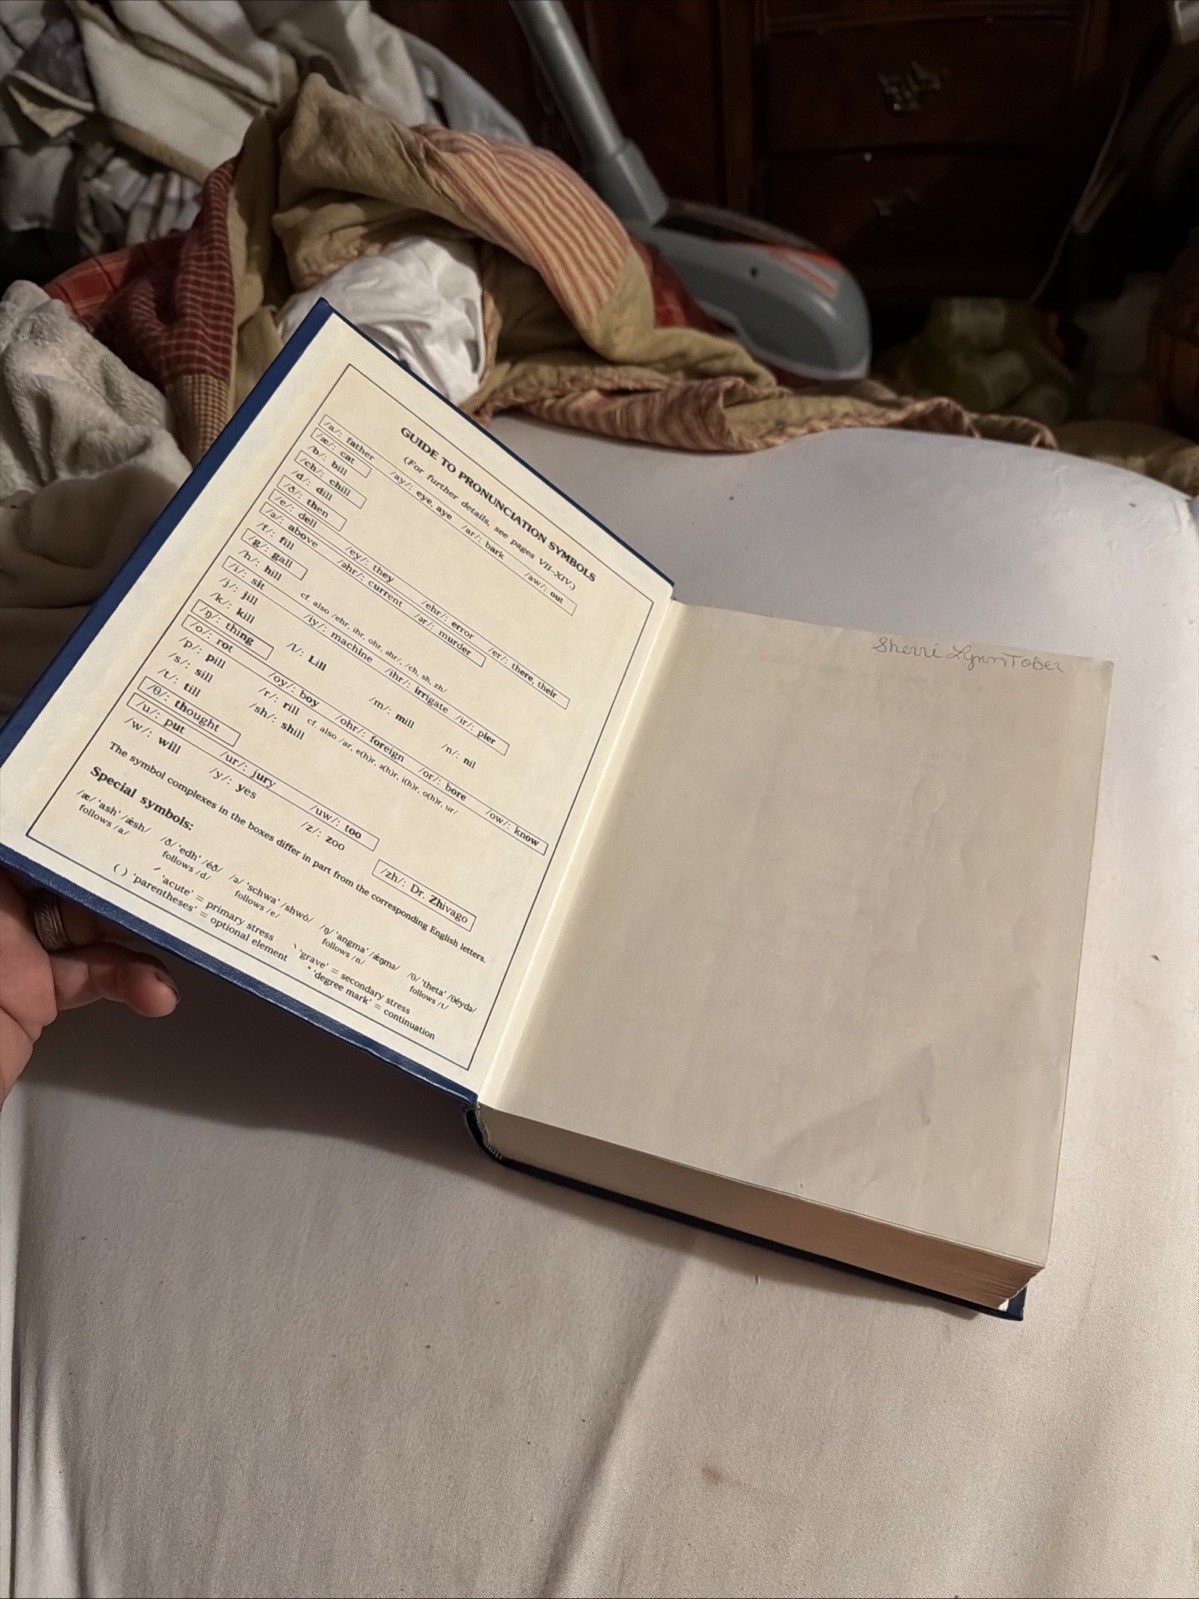 GUIDE TO PRONUNCIATION SYMBOLS
(For further details, see pages VII–XIV.)
/a/: father /ay/: eye, aye /ar/: bark /aw/: out
/æ/: cat
/b/: bill
/ch/: chill
/d/: dill
/ð/: then
/e/: dell /ey/: they /ehr/: error /er/: there, their
/ə/: above /əhr/: current /ər/: murder
/f/: fill
/g/: gall
/h/: hill cf. also /ehr, ihr, ohr, əhr/, /ch, sh, zh/
/i/: sit /iy/: machine /ihr/: irrigate /ir/: pier
/j/: jill
/k/: kill /l/: Lill /m/: mill /n/: nil
/ŋ/: thing
/o/: rot /oy/: boy /ohr/: foreign /or/: bore /ow/: know
/p/: pill /r/: rill cf. also /ar, e(h)r, ə(h)r, i(h)r, o(h)r, ur/
/s/: sill /sh/: shill
/t/: till
/θ/: thought
/u/: put /ur/: jury /uw/: too
/w/: will /y/: yes /z/: zoo /zh/: Dr. Zhivago
The symbol complexes in the boxes differ in part from the corresponding English letters.
Special symbols:
/æ/ 'ash' /ǽsh/ /ð/ 'edh' /éð/ /ə/ 'schwa' /shwó/ /ŋ/ 'angma' /ǽŋmə/ /θ/ 'theta' /θéydə/
follows /a/ follows /d/ follows /e/ follows /n/ follows /t/
´ 'acute' = primary stress ` 'grave' = secondary stress
( ) 'parentheses' = optional element ° 'degree mark' = continuation
Sherri Lynn Tober